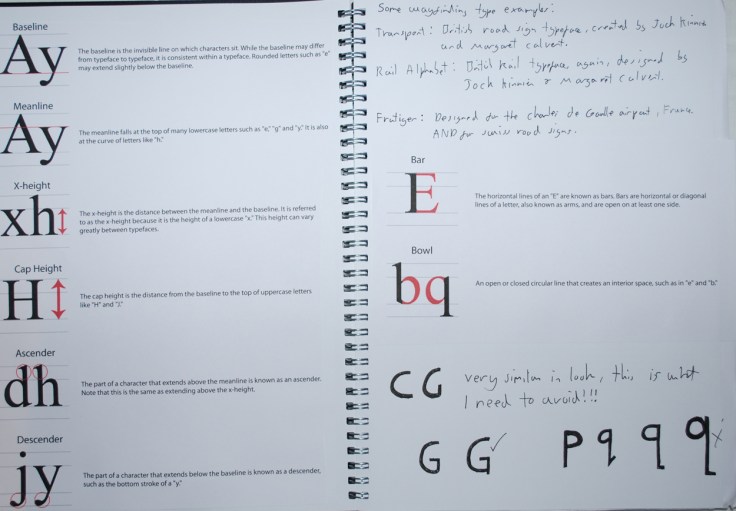 Baseline
Ay
The baseline is the invisible line on which characters sit. While the baseline may differ
from typeface to typeface, it is consistent within a typeface. Rounded letters such as "e"
may extend slightly below the baseline.
Meanline
Ay
The meanline falls at the top of many lowercase letters such as "e," "g" and "y." It is also
at the curve of letters like "h."
X-height
xh
The x-height is the distance between the meanline and the baseline. It is referred
to as the x-height because it is the height of a lowercase "x." This height can vary
greatly between typefaces.
Cap Height
H
The cap height is the distance from the baseline to the top of uppercase letters
like "H" and "J."
Ascender
dh
The part of a character that extends above the meanline is known as an ascender.
Note that this is the same as extending above the x-height.
Descender
jy
The part of a character that extends below the baseline is known as a descender,
such as the bottom stroke of a "y."
Some wayfinding type examples:
Transport: British road sign typeface, created by Jock Kinnier
and Margaret Calvert.
Rail Alphabet: British Rail typeface, again, designed by
Jock Kinnier & Margaret Calvert.
Frutiger: Designed for the Charles de Gaulle airport, France
AND for swiss road signs.
Bar
E
The horizontal lines of an "E" are known as bars. Bars are horizontal or diagonal
lines of a letter, also known as arms, and are open on at least one side.
Bowl
bq
An open or closed circular line that creates an interior space, such as in "e" and "b."
C G very similar in look, this is what
I need to avoid!!!
G G P q q q